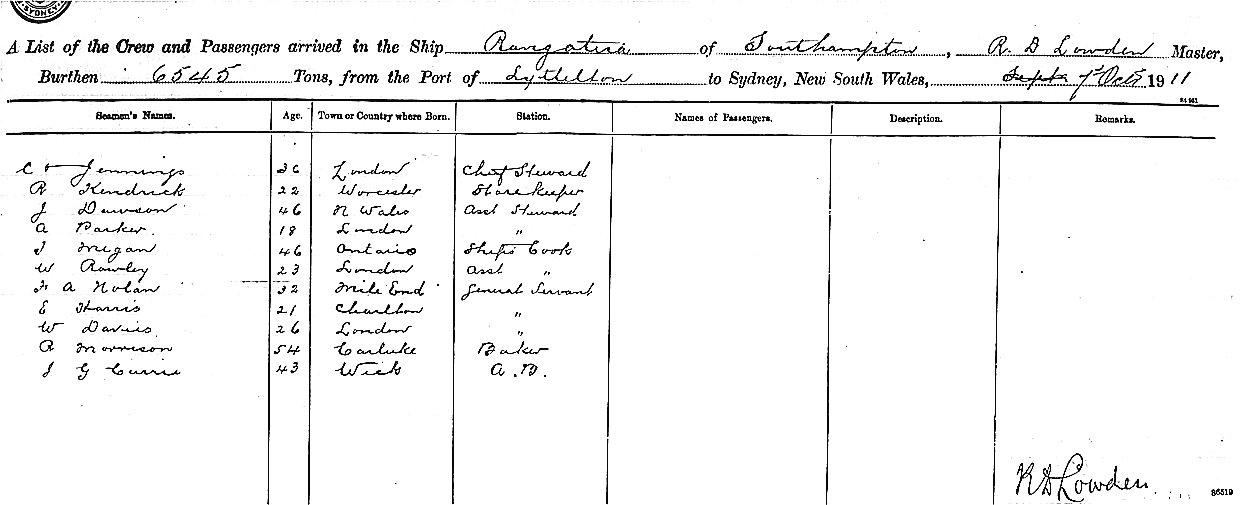 SYDNEY.
A List of the Crew and Passengers arrived in the Ship Rangatira of Southampton, R. D Lowden Master,
Burthen 6545 Tons, from the Port of Lyttelton to Sydney, New South Wales, Sept 7th Oct 1911
Seamen's Names. Age. Town or Country where Born. Station. Names of Passengers. Description. Remarks.
C Jennings 36 London Chief Steward
R Kendrick 22 Worcester Storekeeper
J Dawson 46 N Wales Asst Steward
A Parker. 18 London "
J Megan 46 Ontario Ships Cook
W Rowley 23 London Asst "
A Nolan 32 Mile End General Servant
E Harris 21 Charlton "
W Davies 26 London "
R Morrison 54 Carluke Baker
J G Currie 43 Wick A.B.
R D Lowden
86519